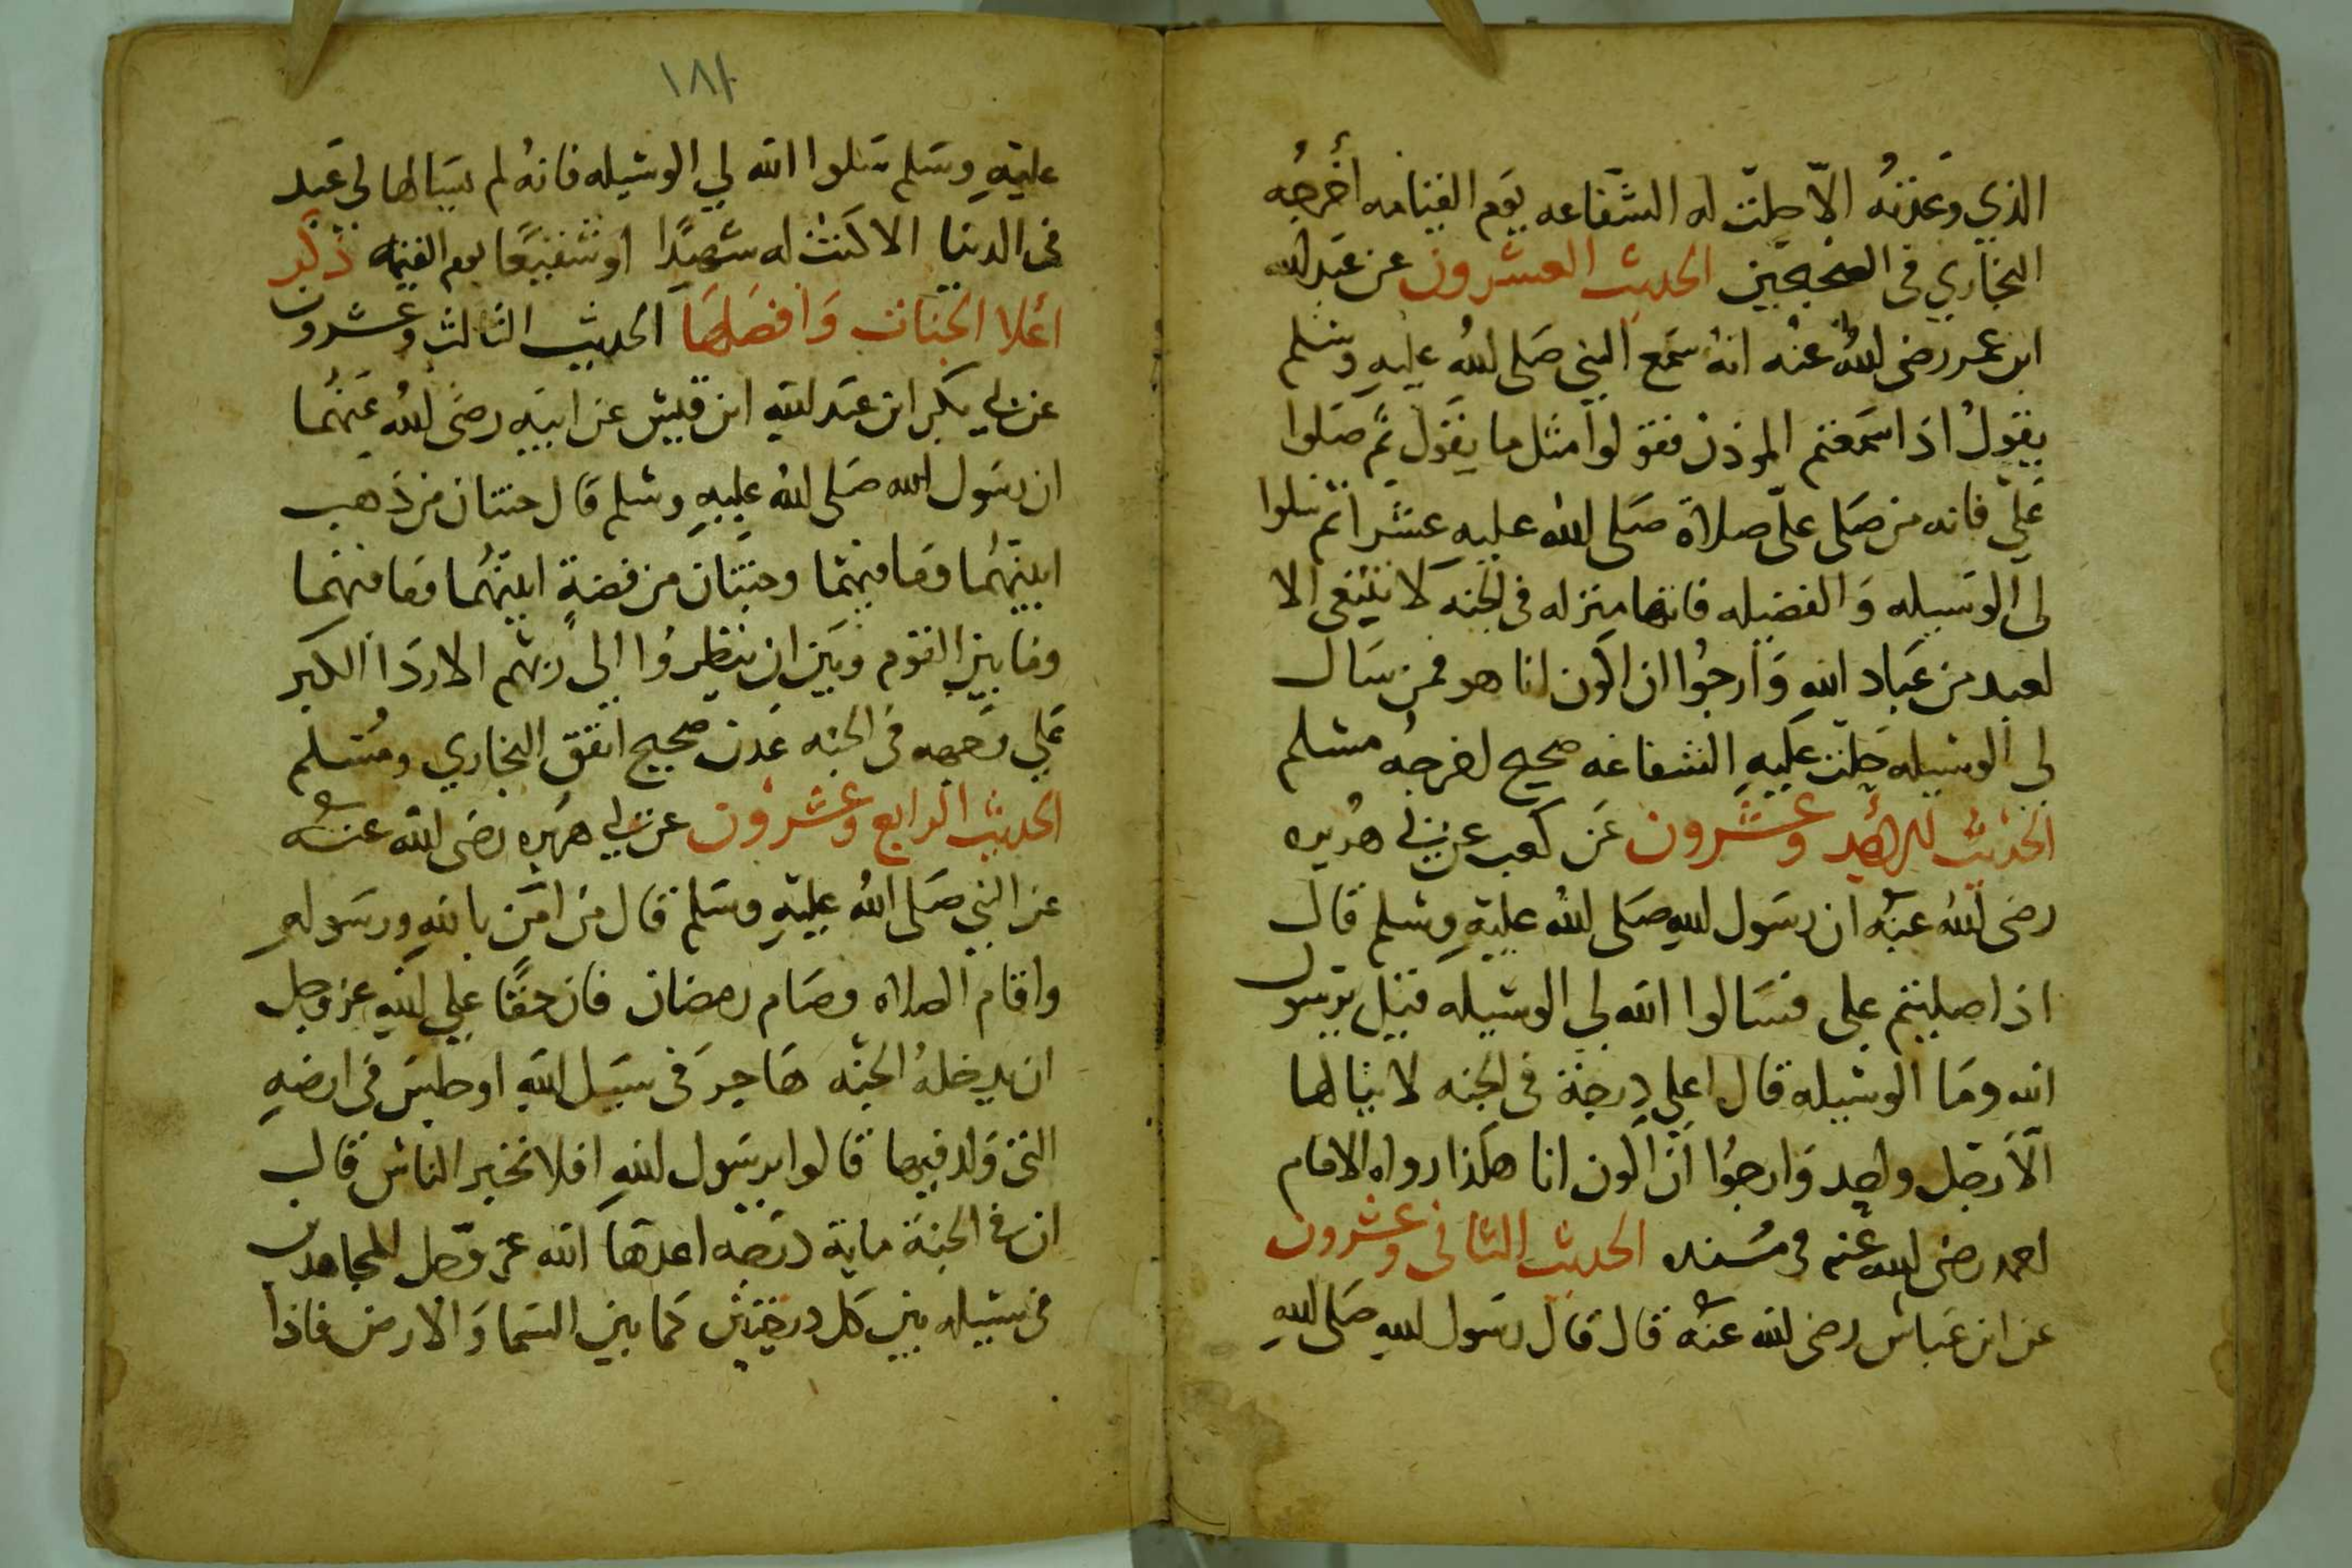 الذي وعدته الاّ حلّت له الشفاعه يوم القيامه أخرجُه
البخاري في الصحيحين الحديث العشرون عن عبد الله
ابن عمر رضى اللهُ عنْه انهُ سَمع النبي صَلى اللهُ عليهِ وسَلم
يقولُ اذا سَمعتم الموذن فقولوا مثل ما يقول ثم صَلوا
عَليّ فانه من صَلى عليّ صلاة صَلى الله عليهِ عشرا ثم سَلوا
لي الوسَيله وَالفضيله فانها منزله في الجنه لا تنبغى الا
لعبد من عَباد اللهِ وَارجُوا ان اكون انا هو فمن سَال
لي الوسَيله حَلت عَليهِ الشفاعه صحيح اخرجهُ مسلم
الحديث الواحد وعشرون عَن كعب عن ابي هُريره
رضى الله عنهُ ان رسَول اللهِ صَلى اللهُ عليهِ وسلم قال
اذا صليتم على فسَالوا الله لي الوسيله قيل يرسول
الله ومَا الوسيله قال اعلي درجة في الجنه لا ينالها
الاّ رجَل واحد وَارجوُا انَ اكون انا هكذا رواه الامام
احمد رضى الله عنه في مُسنده الحديث الثاني وعشرون
عن ابن عَباس رضى الله عنهُ قال قال رسَول اللهِ صَلى اللهِ
١٨٢
عليهِ وسَلم سَلوا الله لي الوسَيله فانهُ لم يسَالها لي عَبد
في الدنيا الا كنت له شهيدًا او شفيعًا يوم القيمه ذكر
اعلا الجنات وَافضلهَا الحديث الثالث وعشرون
عن ابي بكر ابن عبَد اللهِ ابن قيس عن ابيهِ رضَى اللهُ عَنهُما
ان رسَول الله صَلى اللهُ عليهِ وسلم قَال جنتان من ذَهب
انيتهُما ومَا فيهما وجنتان من فضةٍ انيتهُما ومَا فيهما
ومَا بين القوم وبَين ان ينظرُوا الي ربهم الا ردَا الكبر
عَلي وجَهه في الجنه عَدن صحيح اتفق البخاري ومُسَلم
الحديث الرابع وعشرون عن ابي هرَيره رضى الله عنهُ
عن النبي صَلى اللهُ عليهِ وسَلم قال من امَن باللهِ ورسَوله
واقام الصلاه وصَام رمضان فان حقًا علي اللهِ عز وجل
ان يدخلهُ الجنه هَاجرَ في سبَيل اللهِ او جلسَ في ارضهِ
التى وَلد فيها قالوا يرسَول اللهِ افلا نخبر الناس قال
ان في الجنة ماية درجَه اعدها الله عز وَجل للمجاهدين
في سبيله بين كل درجتين كما بين السَما وَالارض فاذا